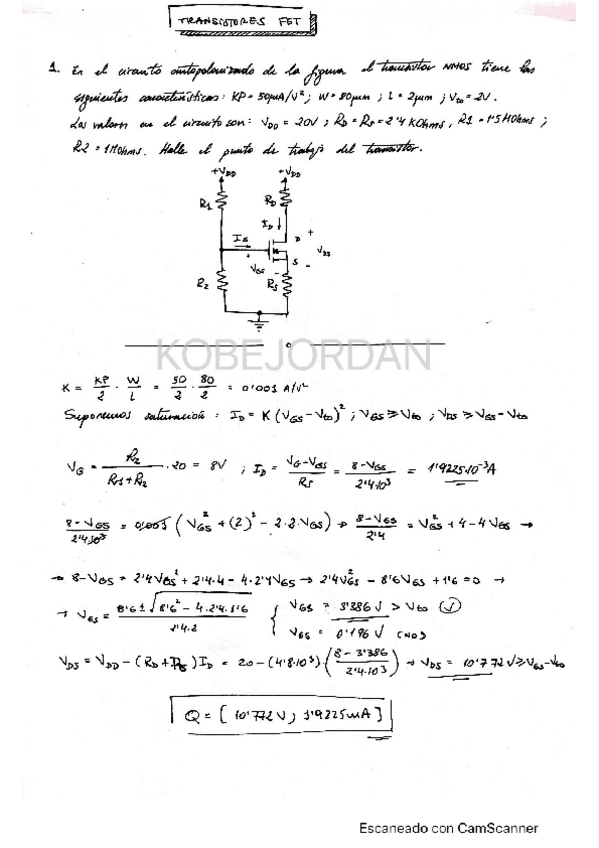 TRANSISTORES FET
1. En el circuito autopolarizado de la figura el transistor NMOS tiene las
siguientes características: KP = 50μA/V²; W = 80μm; L = 2μm; Vto = 2V.
Los valores en el circuito son: VDD = 20V; RD = RS = 2'4 KOhms, R1 = 1'5 MOhms;
R2 = 1 MOhms. Halle el punto de trabajo del transistor.
+VDD +VDD
R1 RD
ID
IG + D
+ VDS
VGS - S -
R2 RS
KOBEJORDAN
K = KP/2 · W/L = 50/2 · 80/2 = 0'001 A/V²
Suponemos saturación: ID = K (VGS - Vto)²; VGS ≥ Vto; VDS ≥ VGS - Vto
VG = R2/(R1+R2) · 20 = 8V ; ID = (VG-VGS)/RS = (8-VGS)/(2'4·10³) = 1'9225·10⁻³A
(8-VGS)/(2'4·10³) = 0,001 (VGS² + (2)² - 2·2·VGS) → (8-VGS)/2'4 = VGS² + 4 - 4VGS →
→ 8-VGS = 2'4VGS² + 2'4·4 - 4·2'4VGS → 2'4VGS² - 8'6VGS + 1'6 = 0 →
→ VGS = (8'6 ± √(8'6² - 4·2'4·1'6))/(2'4·2) { VGS = 3'386 V > Vto (✓)
VGS = 0'196 V (NO)
VDS = VDD - (RD + RS) ID = 20 - (4'8·10³)·((8 - 3'386)/(2'4·10³)) → VDS = 10'772 V ≥ VGS - Vto
Q = [ 10'772 V ; 1'9225 mA ]
Escaneado con CamScanner